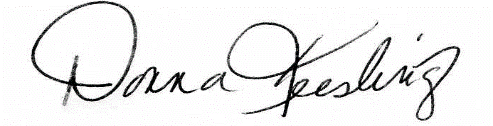 Donna Keesling